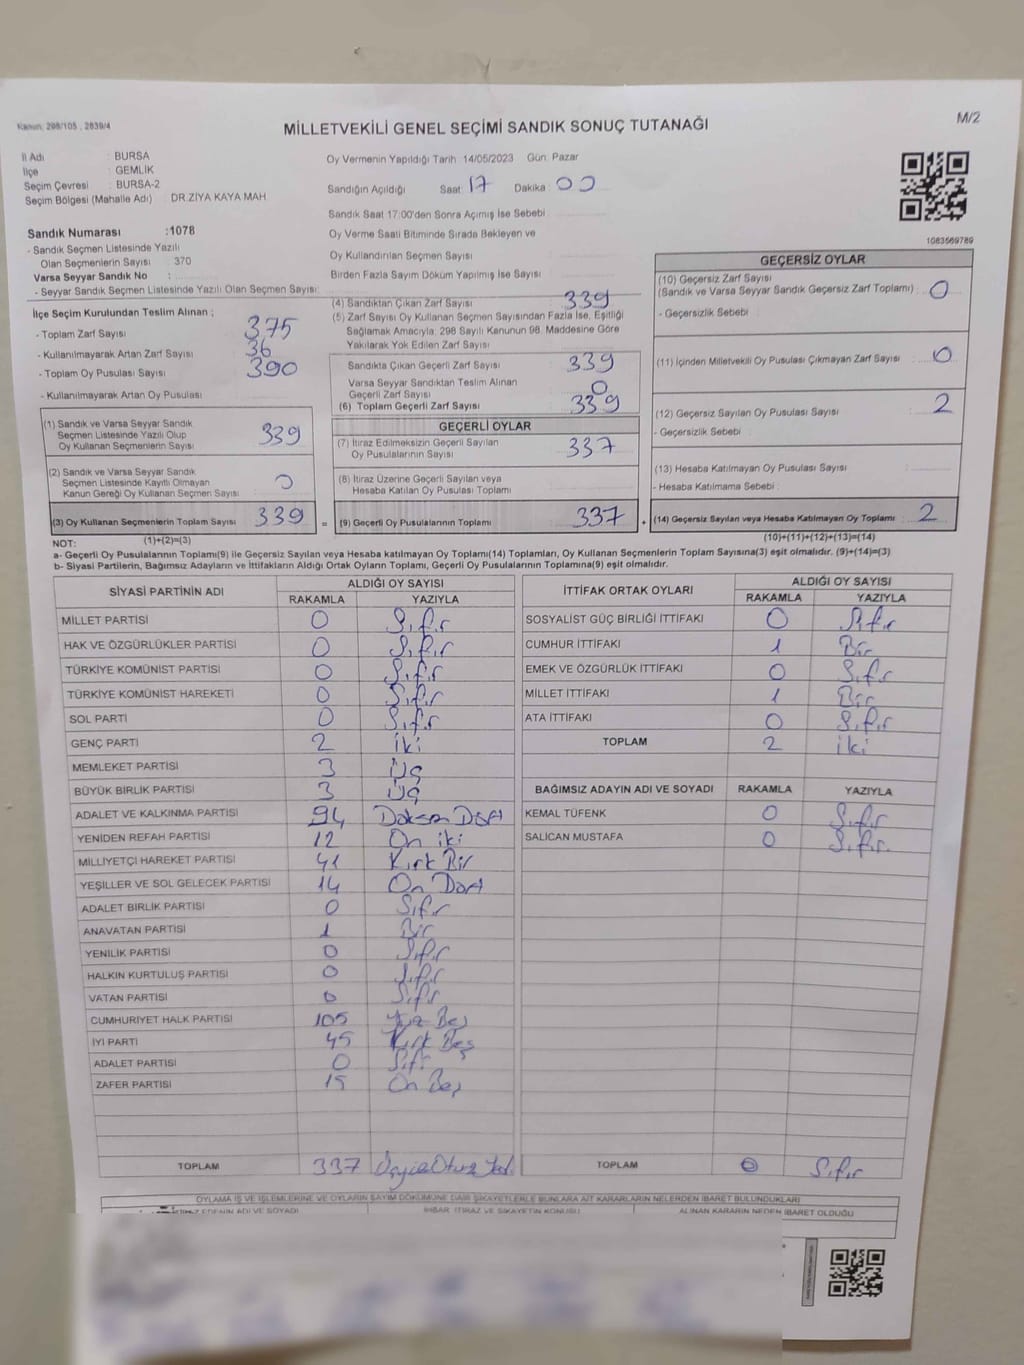 Kanun: 298/105 , 2839/4
MİLLETVEKİLİ GENEL SEÇİMİ SANDIK SONUÇ TUTANAĞI
M/2
İl Adı : BURSA
İlçe : GEMLİK
Seçim Çevresi : BURSA-2
Seçim Bölgesi (Mahalle Adı) : DR.ZİYA KAYA MAH
Sandık Numarası :1078
- Sandık Seçmen Listesinde Yazılı
Olan Seçmenlerin Sayısı : 370
Varsa Seyyar Sandık No :
- Seyyar Sandık Seçmen Listesinde Yazılı Olan Seçmen Sayısı:
İlçe Seçim Kurulundan Teslim Alınan ;
- Toplam Zarf Sayısı 375
- Kullanılmayarak Artan Zarf Sayısı 36
- Toplam Oy Pusulası Sayısı 390
- Kullanılmayarak Artan Oy Pusulası
(1) Sandık ve Varsa Seyyar Sandık
Seçmen Listesinde Yazılı Olup
Oy Kullanan Seçmenlerin Sayısı 339
(2) Sandık ve Varsa Seyyar Sandık
Seçmen Listesinde Kayıtlı Olmayan
Kanun Gereği Oy Kullanan Seçmen Sayısı 0
(3) Oy Kullanan Seçmenlerin Toplam Sayısı 339
(1)+(2)=(3)
Oy Vermenin Yapıldığı Tarih : 14/05/2023 Gün: Pazar
Sandığın Açıldığı Saat: 17 Dakika: 00
Sandık Saat 17:00'den Sonra Açılmış İse Sebebi :
Oy Verme Saati Bitiminde Sırada Bekleyen ve
Oy Kullandırılan Seçmen Sayısı
Birden Fazla Sayım Döküm Yapılmış İse Sayısı
(4) Sandıktan Çıkan Zarf Sayısı 339
(5) Zarf Sayısı Oy Kullanan Seçmen Sayısından Fazla İse, Eşitliği
Sağlamak Amacıyla, 298 Sayılı Kanunun 98. Maddesine Göre
Yakılarak Yok Edilen Zarf Sayısı
Sandıkta Çıkan Geçerli Zarf Sayısı 339
Varsa Seyyar Sandıktan Teslim Alınan
Geçerli Zarf Sayısı 0
(6) Toplam Geçerli Zarf Sayısı 339
GEÇERLİ OYLAR
(7) İtiraz Edilmeksizin Geçerli Sayılan
Oy Pusulalarının Sayısı 337
(8) İtiraz Üzerine Geçerli Sayılan veya
Hesaba Katılan Oy Pusulası Toplamı
= (9) Geçerli Oy Pusulalarının Toplamı 337
1083569789
GEÇERSİZ OYLAR
(10) Geçersiz Zarf Sayısı
(Sandık ve Varsa Seyyar Sandık Geçersiz Zarf Toplamı) 0
- Geçersizlik Sebebi :
(11) İçinden Milletvekili Oy Pusulası Çıkmayan Zarf Sayısı 0
(12) Geçersiz Sayılan Oy Pusulası Sayısı 2
- Geçersizlik Sebebi :
(13) Hesaba Katılmayan Oy Pusulası Sayısı
- Hesaba Katılmama Sebebi :
+ (14) Geçersiz Sayılan veya Hesaba Katılmayan Oy Toplamı 2
(10)+(11)+(12)+(13)=(14)
NOT:
a- Geçerli Oy Pusulalarının Toplamı(9) ile Geçersiz Sayılan veya Hesaba katılmayan Oy Toplamı(14) Toplamları, Oy Kullanan Seçmenlerin Toplam Sayısına(3) eşit olmalıdır. (9)+(14)=(3)
b- Siyasi Partilerin, Bağımsız Adayların ve İttifakların Aldığı Ortak Oyların Toplamı, Geçerli Oy Pusulalarının Toplamına(9) eşit olmalıdır.
SİYASİ PARTİNİN ADI ALDIĞI OY SAYISI
RAKAMLA YAZIYLA
MİLLET PARTİSİ 0 Sıfır
HAK VE ÖZGÜRLÜKLER PARTİSİ 0 Sıfır
TÜRKİYE KOMÜNİST PARTİSİ 0 Sıfır
TÜRKİYE KOMÜNİST HAREKETİ 0 Sıfır
SOL PARTİ 0 Sıfır
GENÇ PARTİ 2 İki
MEMLEKET PARTİSİ 3 Üç
BÜYÜK BİRLİK PARTİSİ 3 Üç
ADALET VE KALKINMA PARTİSİ 94 Doksan Dört
YENİDEN REFAH PARTİSİ 12 On iki
MİLLİYETÇİ HAREKET PARTİSİ 41 Kırk Bir
YEŞİLLER VE SOL GELECEK PARTİSİ 14 On Dört
ADALET BİRLİK PARTİSİ 0 Sıfır
ANAVATAN PARTİSİ 1 Bir
YENİLİK PARTİSİ 0 Sıfır
HALKIN KURTULUŞ PARTİSİ 0 Sıfır
VATAN PARTİSİ 0 Sıfır
CUMHURİYET HALK PARTİSİ 105 Yüz Beş
İYİ PARTİ 45 Kırk Beş
ADALET PARTİSİ 0 Sıfır
ZAFER PARTİSİ 15 On Beş
TOPLAM 337 Üçyüz Otuz Yedi
İTTİFAK ORTAK OYLARI ALDIĞI OY SAYISI
RAKAMLA YAZIYLA
SOSYALİST GÜÇ BİRLİĞİ İTTİFAKI 0 Sıfır
CUMHUR İTTİFAKI 1 Bir
EMEK VE ÖZGÜRLÜK İTTİFAKI 0 Sıfır
MİLLET İTTİFAKI 1 Bir
ATA İTTİFAKI 0 Sıfır
TOPLAM 2 İki
BAĞIMSIZ ADAYIN ADI VE SOYADI RAKAMLA YAZIYLA
KEMAL TÜFENK 0 Sıfır
SALİCAN MUSTAFA 0 Sıfır.
TOPLAM 0 Sıfır
OYLAMA İŞ VE İŞLEMLERİNE VE OYLARIN SAYIM DÖKÜMÜNE DAİR ŞİKAYETLERLE BUNLARA AİT KARARLARIN NELERDEN İBARET BULUNDUKLARI
EDENİN ADI VE SOYADI İHBAR, İTİRAZ VE ŞİKAYETİN KONUSU ALINAN KARARIN NEDEN İBARET OLDUĞU